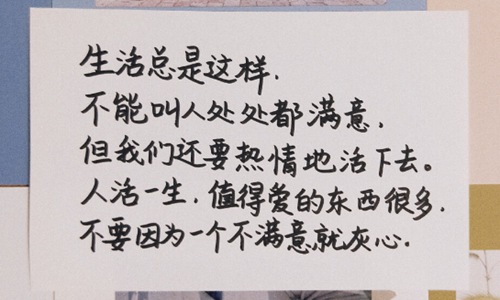 生活总是这样.
不能叫人处处都满意.
但我们还要热情地活下去。
人活一生.值得爱的东西很多.
不要因为一个不满意就灰心.